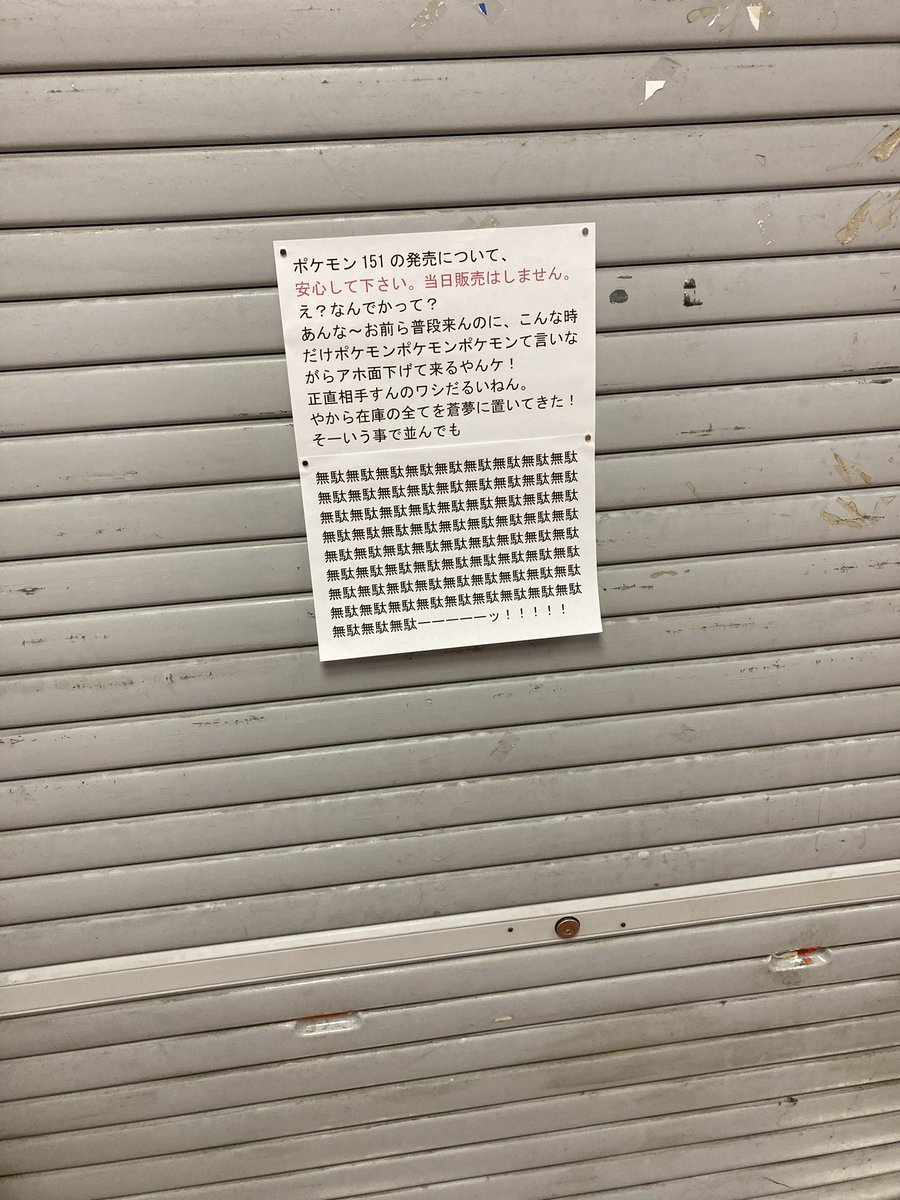 ポケモン 151 の発売について、
安心して下さい。当日販売はしません。
え？なんでかって？
あんな～お前ら普段来んのに、こんな時
だけポケモンポケモンポケモンて言いな
がらアホ面下げて来るやんケ！
正直相手すんのワシだるいねん。
やから在庫の全てを蒼夢に置いてきた！
そーいう事で並んでも
無駄無駄無駄無駄無駄無駄無駄無駄無駄
無駄無駄無駄無駄無駄無駄無駄無駄無駄
無駄無駄無駄無駄無駄無駄無駄無駄無駄
無駄無駄無駄無駄無駄無駄無駄無駄無駄
無駄無駄無駄無駄無駄無駄無駄無駄無駄
無駄無駄無駄無駄無駄無駄無駄無駄無駄
無駄無駄無駄無駄無駄無駄無駄無駄無駄
無駄無駄無駄無駄無駄無駄無駄無駄無駄
無駄無駄無駄―――――ッ！！！！！